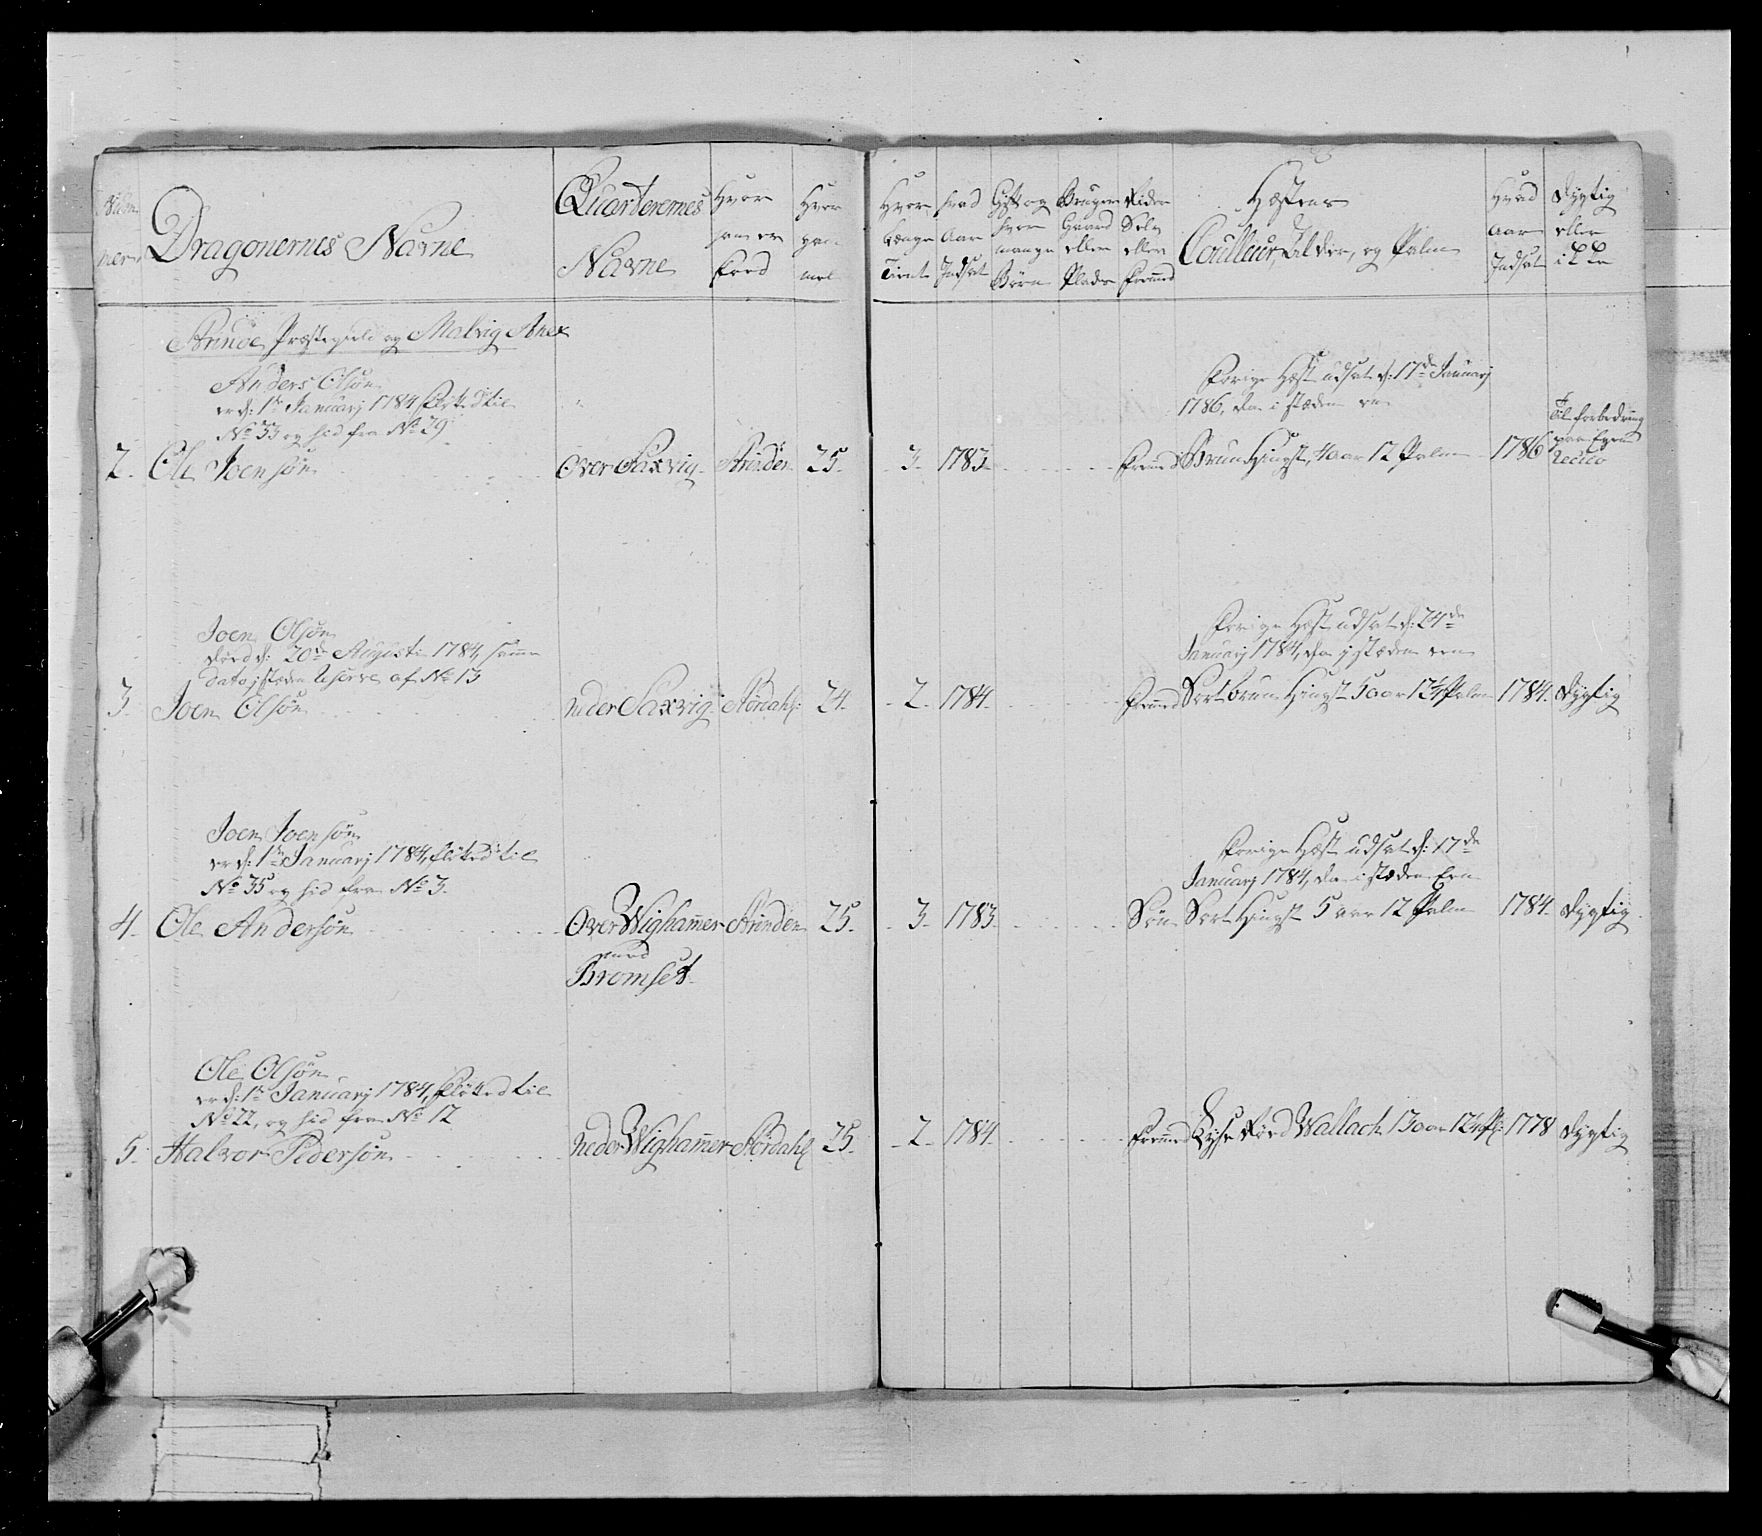 Num
mer
Dragonernes Navne
Quarterernes
Navne
Hvor
han er
født
Hvor
gam
mel
Hvor
længe
Tient
Hvad
Aar
Indsat
Gift og
hvor
mange
Børn
Bruger
Gaard
eller
Plads
Rider
Selv
eller
fremmed
Hæstens
Couleur, Alder, og Palm
Hvad
Aar
Indsat
Dygtig
eller
ikke
Strinde Præstegield og Malvig Anex
Anders Olsøn
er d: 1te Januarj 1784 flötted til
No 33 og hid fra No 29
2. Ole Joensøn
Over Saxvig
Strinden
25.
3.
1783
fremed
Forige Hæst udsat d: 17de Januarj
1786, den i stæden en
Brun Hingst, 4 aar 12 Palm
1786
Til forbedring
paa Egene
Joen Olsøn
død d: 20de Augusti 1784, samme
Dato j stæden Reserve af No 13
3. Joen Olsøn
neder Saxvig
Størdahl:
24.
2.
1784.
fremed
Forige Hæst udsat d: 24de
Januarj 1784, den j stæden een
Sortbrun Hingst 5 aar 12¼ Palm
1784.
Dygtig
Joen Joensøn
er d: 1te Januarj 1784, flötted til
No 35 og hid fra No 3.
4. Ole Andersøn
Over Wighamer
med
Bromset.
Strinden
25.
3.
1783.
Søn
Forige Hæst udsat d: 17de
Januarj 1784, den i stæden Een
Sort Hingst 5 aar 12 Palm
1784.
Dygtig
Ole Olsøn
er d: 1te Januarj 1784, flötted til
No 22, og hid fra No 12
5. Halvor Pedersøn
neder Wighamer
Størdahl
25.
2.
1784.
fremed
Lyse Rød Wallach 13 aar
1778
Dygtig